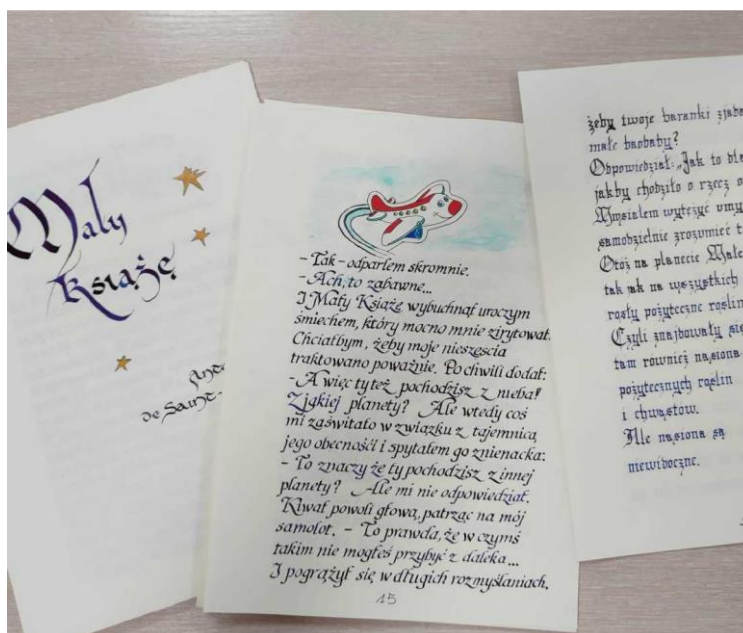 Mały
Książę
de Saint-
- Tak - odparłem skromnie.
- Ach, to zabawne...
I Mały Książę wybuchnął uroczym
śmiechem, który mocno mnie zirytował.
Chciałbym, żeby moje nieszęscia
traktowano poważnie. Po chwili dodał:
- A więc ty też pochodzisz z nieba!
Z jakiej planety? Ale wtedy coś
mi zaświtało w związku z tajemnicą
jego obecnośći i spytałem go znienacka:
- To znaczy że ty pochodzisz z innej
planety? Ale mi nie odpowiedział.
Kiwał powoli głową, patrząc na mój
samolot. - To prawda, że w czymś
takim nie mogłeś przybyć z daleka...
I pogrążył się w długich rozmyślaniach.
15
żeby twoje baranki zjada
małe baobaby?
Odpowiedział: „Jak to dla
jakby chodziło o rzecz o
Musiałem wytężyć umy
samodzielnie zrozumieć t
Otóż na planecie Małe
tak jak na wszystkich
rosły pożyteczne roślin
Czyli znajdowały się
tam również nasiona
pożytecznych roślin
i chwastów.
Ale nasiona są
niewidoczne.